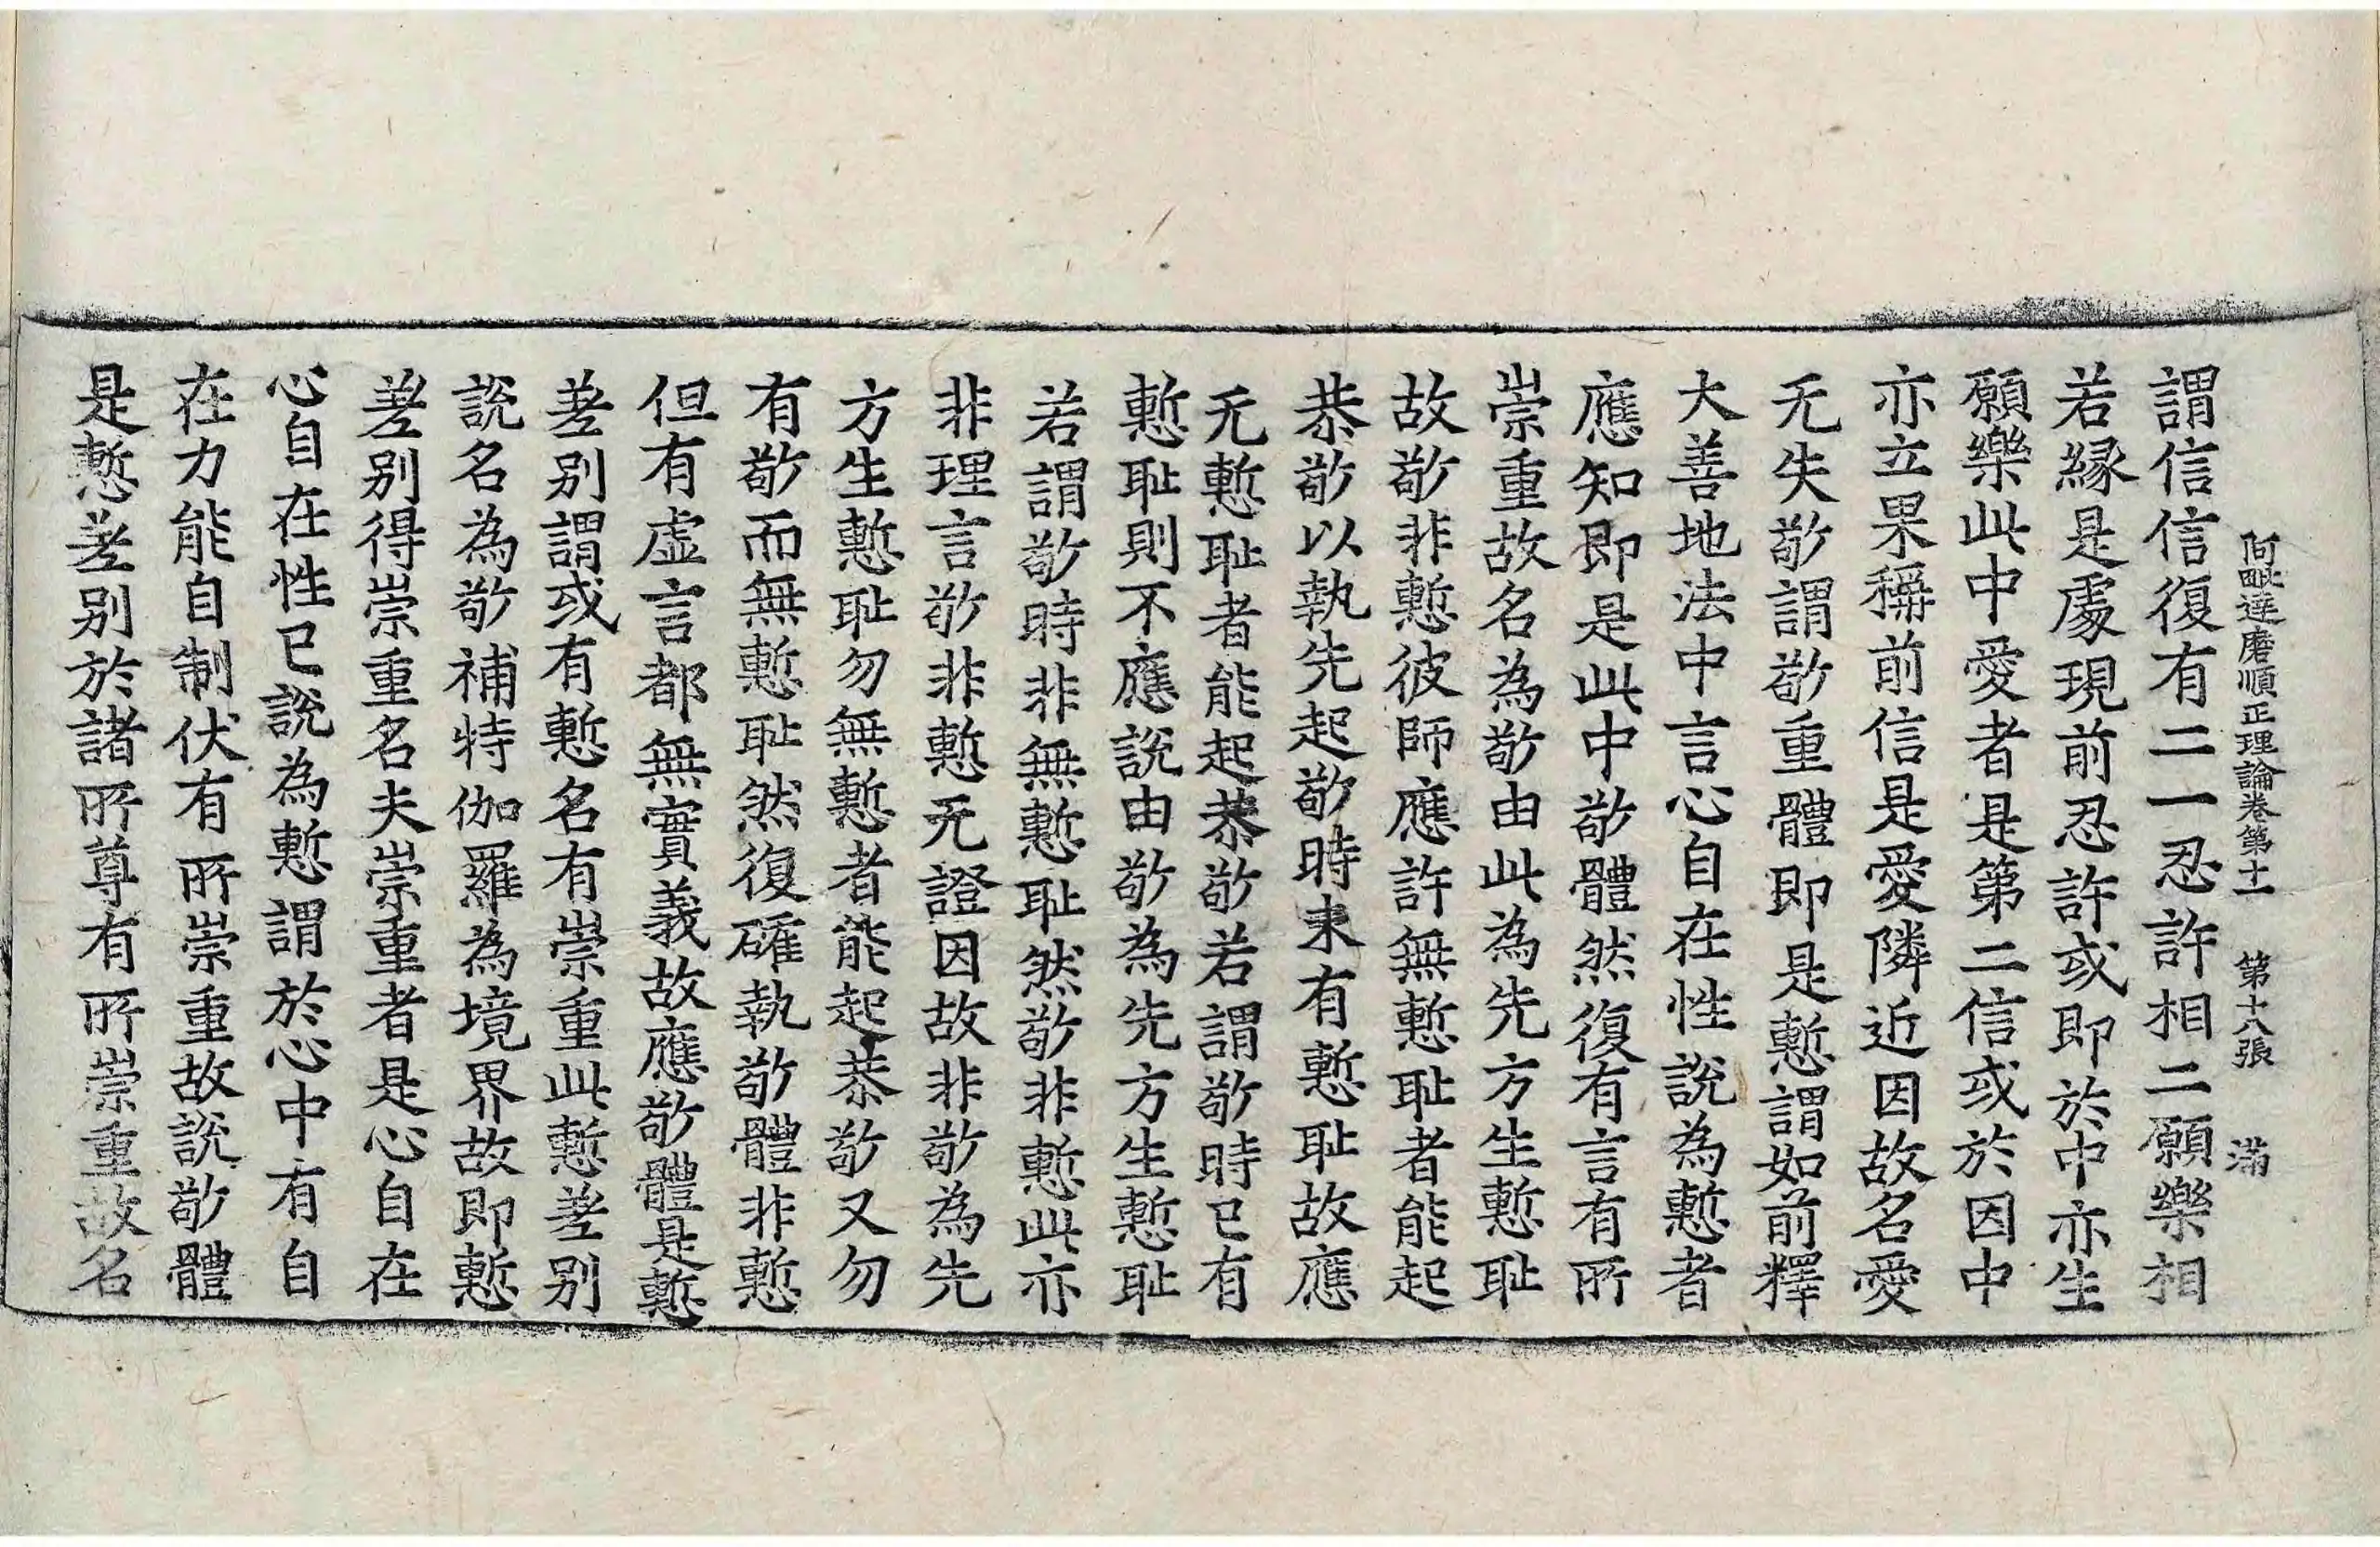 阿毗達磨順正理論卷第十一　第十八張　滿
謂信信復有二一忍許相二願樂相
若緣是處現前忍許或即於中亦生
願樂此中愛者是第二信或於因中
亦立果稱前信是愛隣近因故名愛
无失敬謂敬重體即是慙謂如前釋
大善地法中言心自在性說為慙者
應知即是此中敬體然復有言有所
崇重故名為敬由此為先方生慙耻
故敬非慙彼師應許無慙耻者能起
恭敬以執先起敬時未有慙耻故應
无慙耻者能起恭敬若謂敬時已有
慙耻則不應說由敬為先方生慙耻
若謂敬時非無慙耻然敬非慙此亦
非理言敬非慙无證因故非敬為先
方生慙耻勿無慙者能起恭敬又勿
有敬而無慙耻然復確執敬體非慙
但有虛言都無實義故應敬體是慙
差別謂或有慙名有崇重此慙差別
說名為敬補特伽羅為境界故即慙
差別得崇重名夫崇重者是心自在
心自在性已說為慙謂於心中有自
在力能自制伏有所崇重故說敬體
是慙差別於諸所尊有所崇重故名